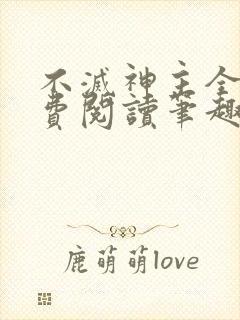 不滅神主全
費閱讀筆趣
鹿萌萌love